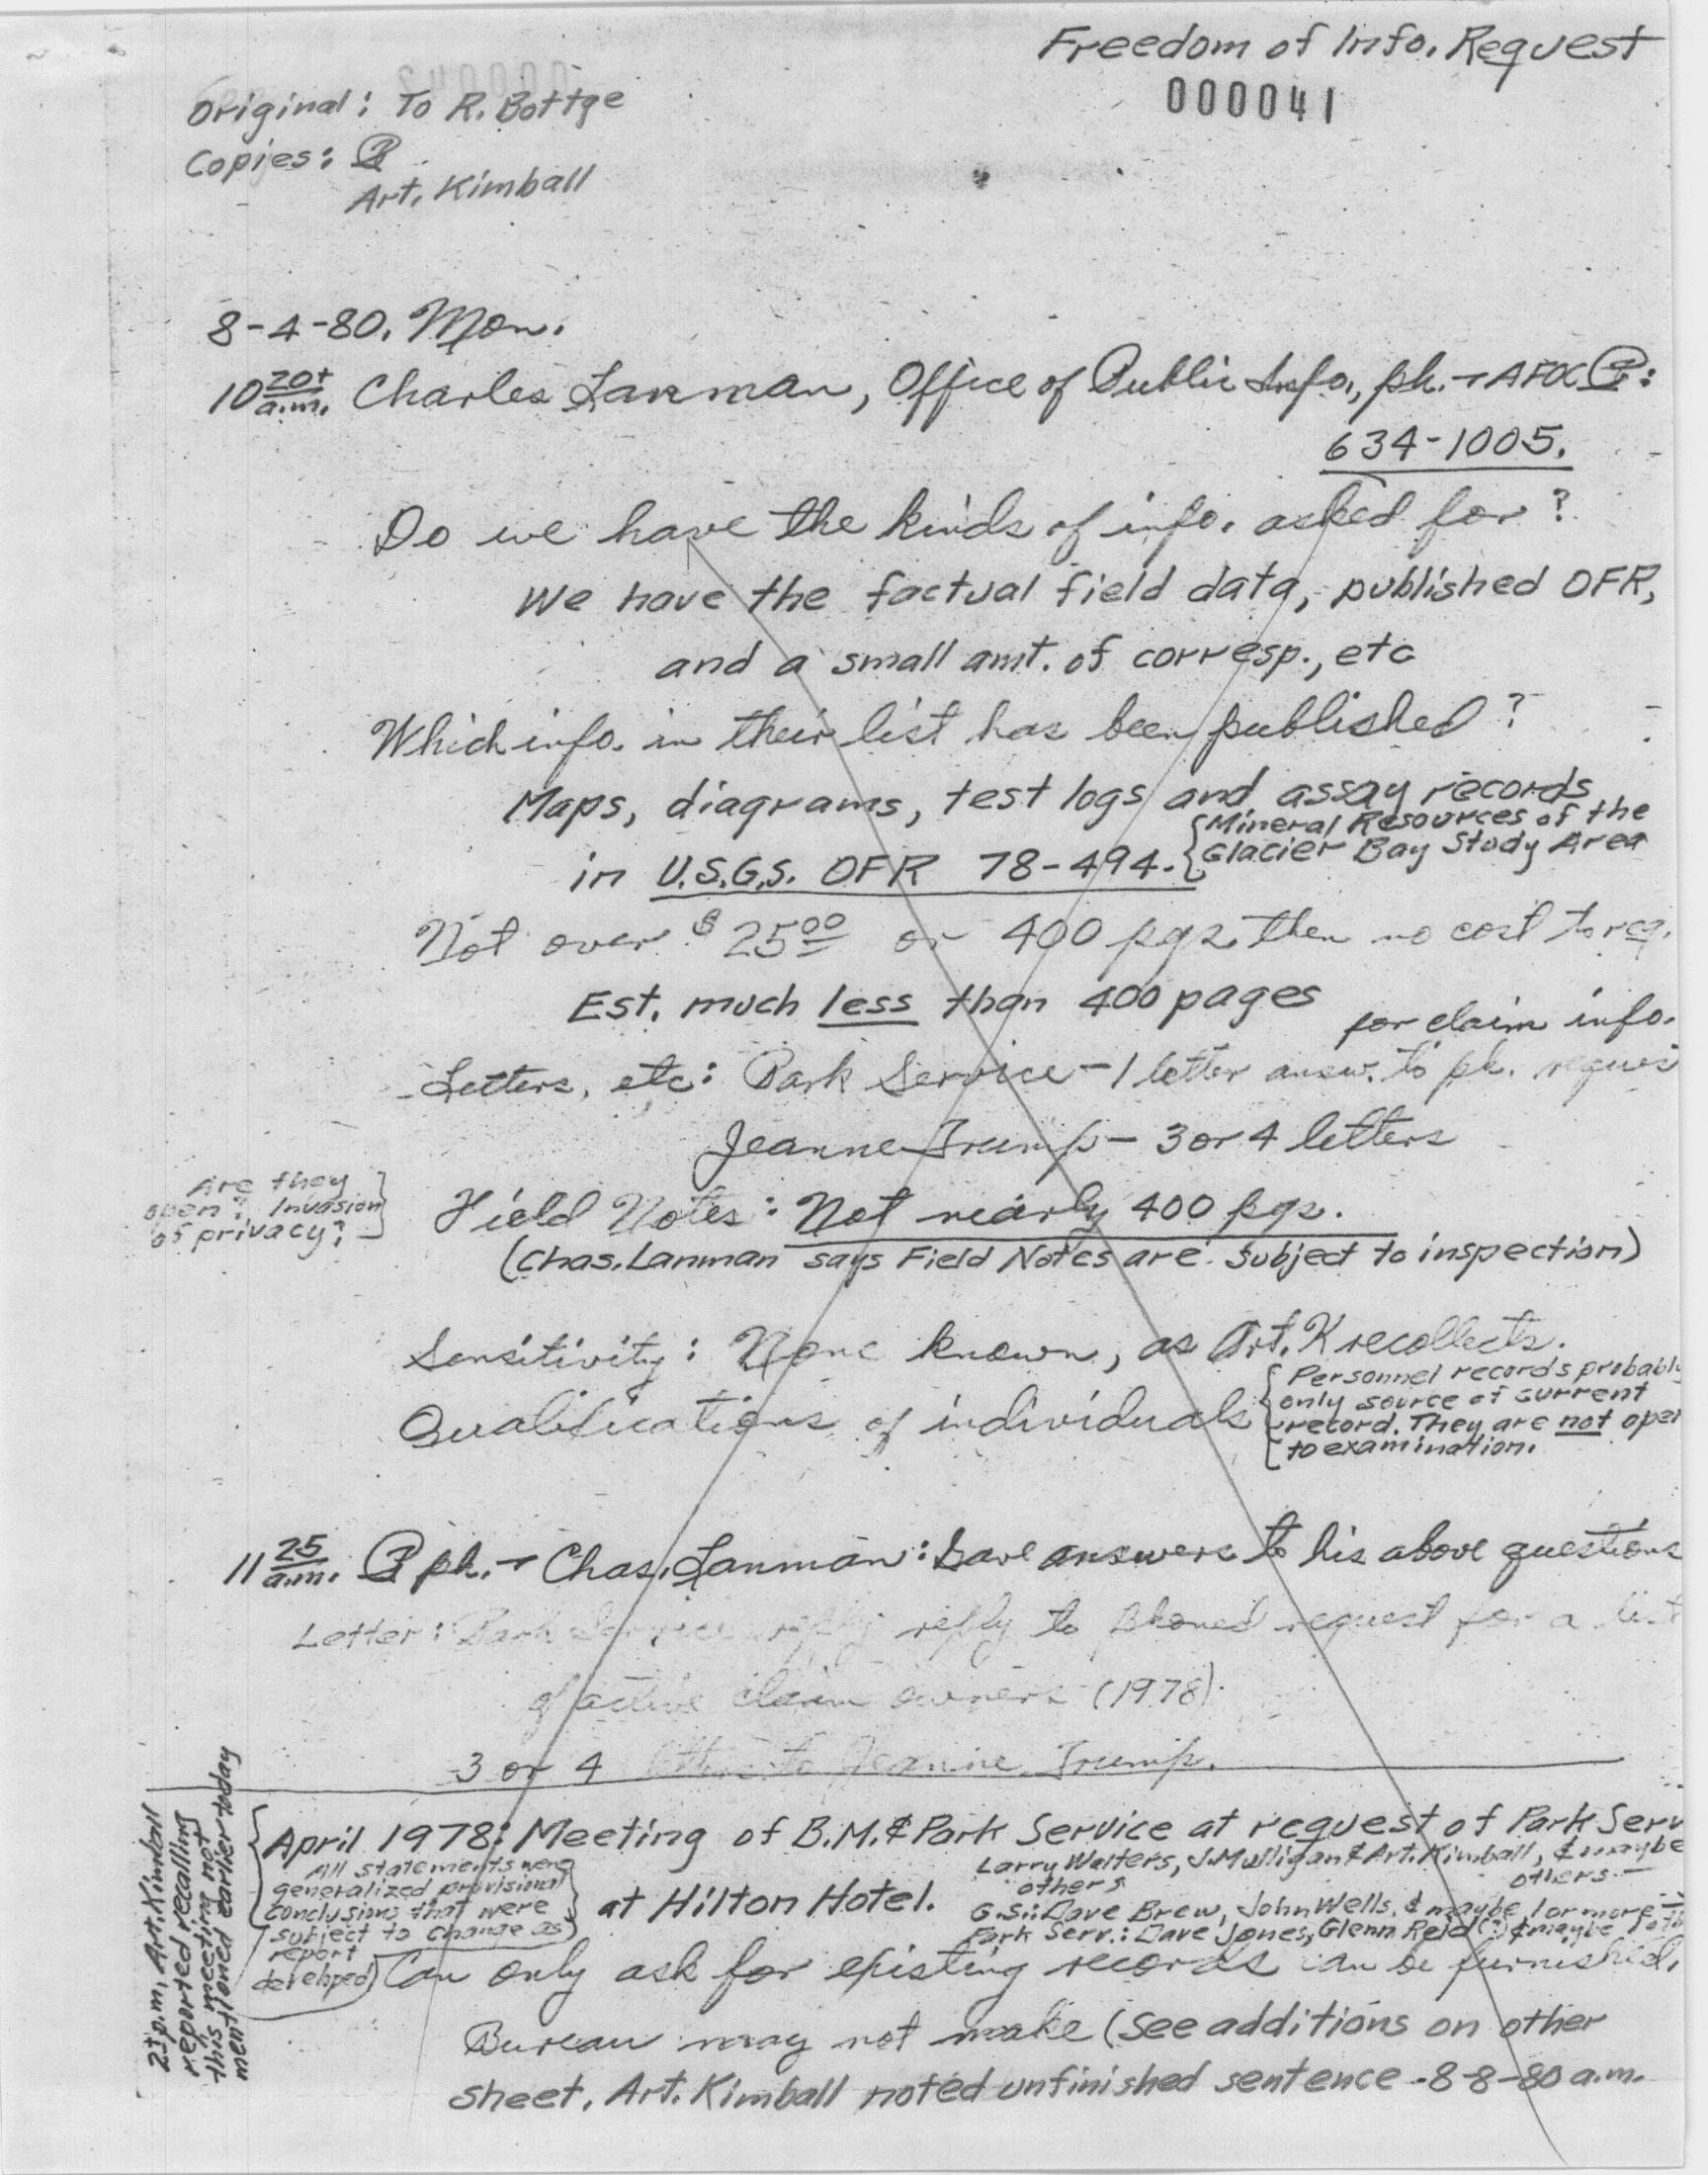 Freedom of Info. Request
000041
Original: To R. Bottge
Copies:
Art. Kimball
8-4-80. Mon.
10 20+ a.m. Charles Lanman, Office of Public Info., ph. → AFOC
634-1005.
Do we have the kinds of info. asked for?
We have the factual field data, published OFR,
and a small amt. of corresp., etc
Which info. in their list has been published?
Maps, diagrams, test logs and assay records
in U.S.G.S. OFR 78-494. {Mineral Resources of the
Glacier Bay Study Area
Not over $25.00 or 400 pgs. then no cost to req.
Est. much less than 400 pages
for claim info.
Letters, etc: Park Service - 1 letter answ. to ph. reques
Jeanne Trump - 3 or 4 letters
Are they
open? Invasion
of privacy?
Field Notes: Not nearly 400 pgs.
(Chas. Lanman says Field Notes are subject to inspection)
Sensitivity: None known, as Art. K recollects.
Qualifications of individuals
{Personnel records probably
only source of current
record. They are not open
to examination.
11 25 a.m. ph. → Chas. Lanman: Gave answers to his above questions
Letter: Park Service reply to phoned request for a list
of active claim owners (1978).
3 or 4 letters to Jeanne Trump.
April 1978: Meeting of B.M. & Park Service at request of Park Serv
Larry Walters, J. Mulligan & Art. Kimball, & maybe
others
at Hilton Hotel.
G.S.: Dave Brew, John Wells, & maybe 1 or more
Park Serv.: Dave Jones, Glenn Reid (?) & maybe
All statements were
generalized provisional
conclusions that were
subject to change as
report
developed)
2+ p.m. Art. Kimball
reported recalling
this meeting not
mentioned earlier today
Can only ask for existing records can be furnished,
Bureau may not make (see additions on other
sheet. Art. Kimball noted unfinished sentence - 8-8-80 a.m.